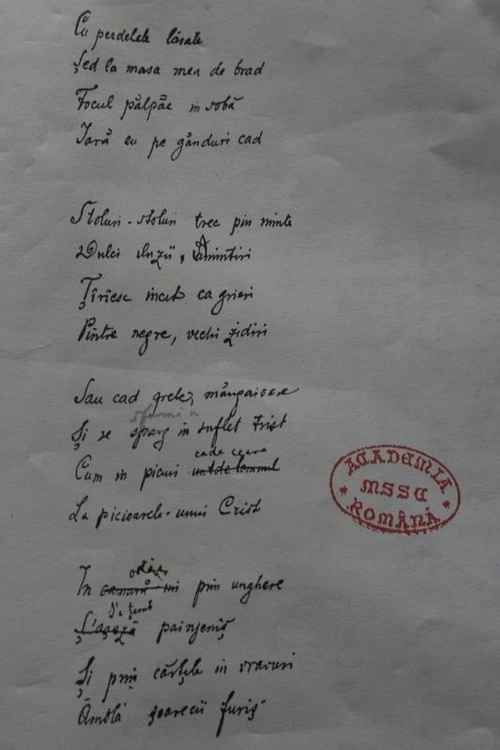 Cu perdelele lăsate
Șed la masa mea de brad
Focul pâlpâe in sobă
Iară eu pe gânduri cad
Stoluri-stoluri trec prin minte
Dulci iluzii, Amintiri
Țîrîesc incet ca grieri
Pintre negre, vechi zidiri
Sau cad grele, mângaioase
Și se sparg in suflet trist
cade ceara
Cum in picuri untdelemnul
La picioarele-unui Crist
odae
In camară-mi prin unghere
S'a țesut
S'așeză painjeniș
Și prin cărțile in vravuri
Âmblă șoarecii furiș
ACADEMIA
MSSE
ROMÂNĂ